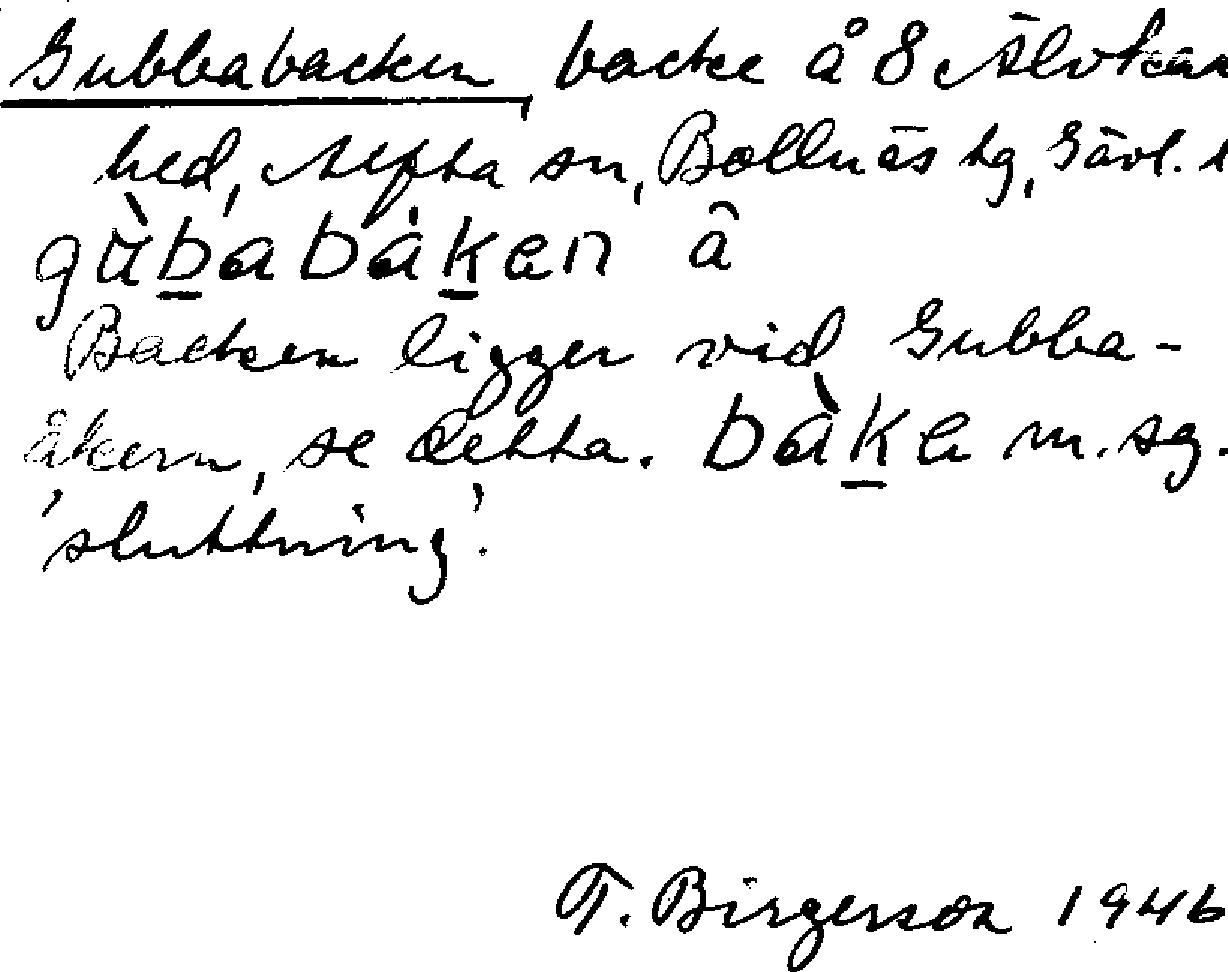 Gubbabacken, backe å 8 Älvkar
hed, Alfta sn, Bollnäs tg, Gävl. l
gùbabáken â
Backen ligger vid Gubba-
åkern, se detta. bàke m. sg.
'sluttning'.
T. Birgerson 1946